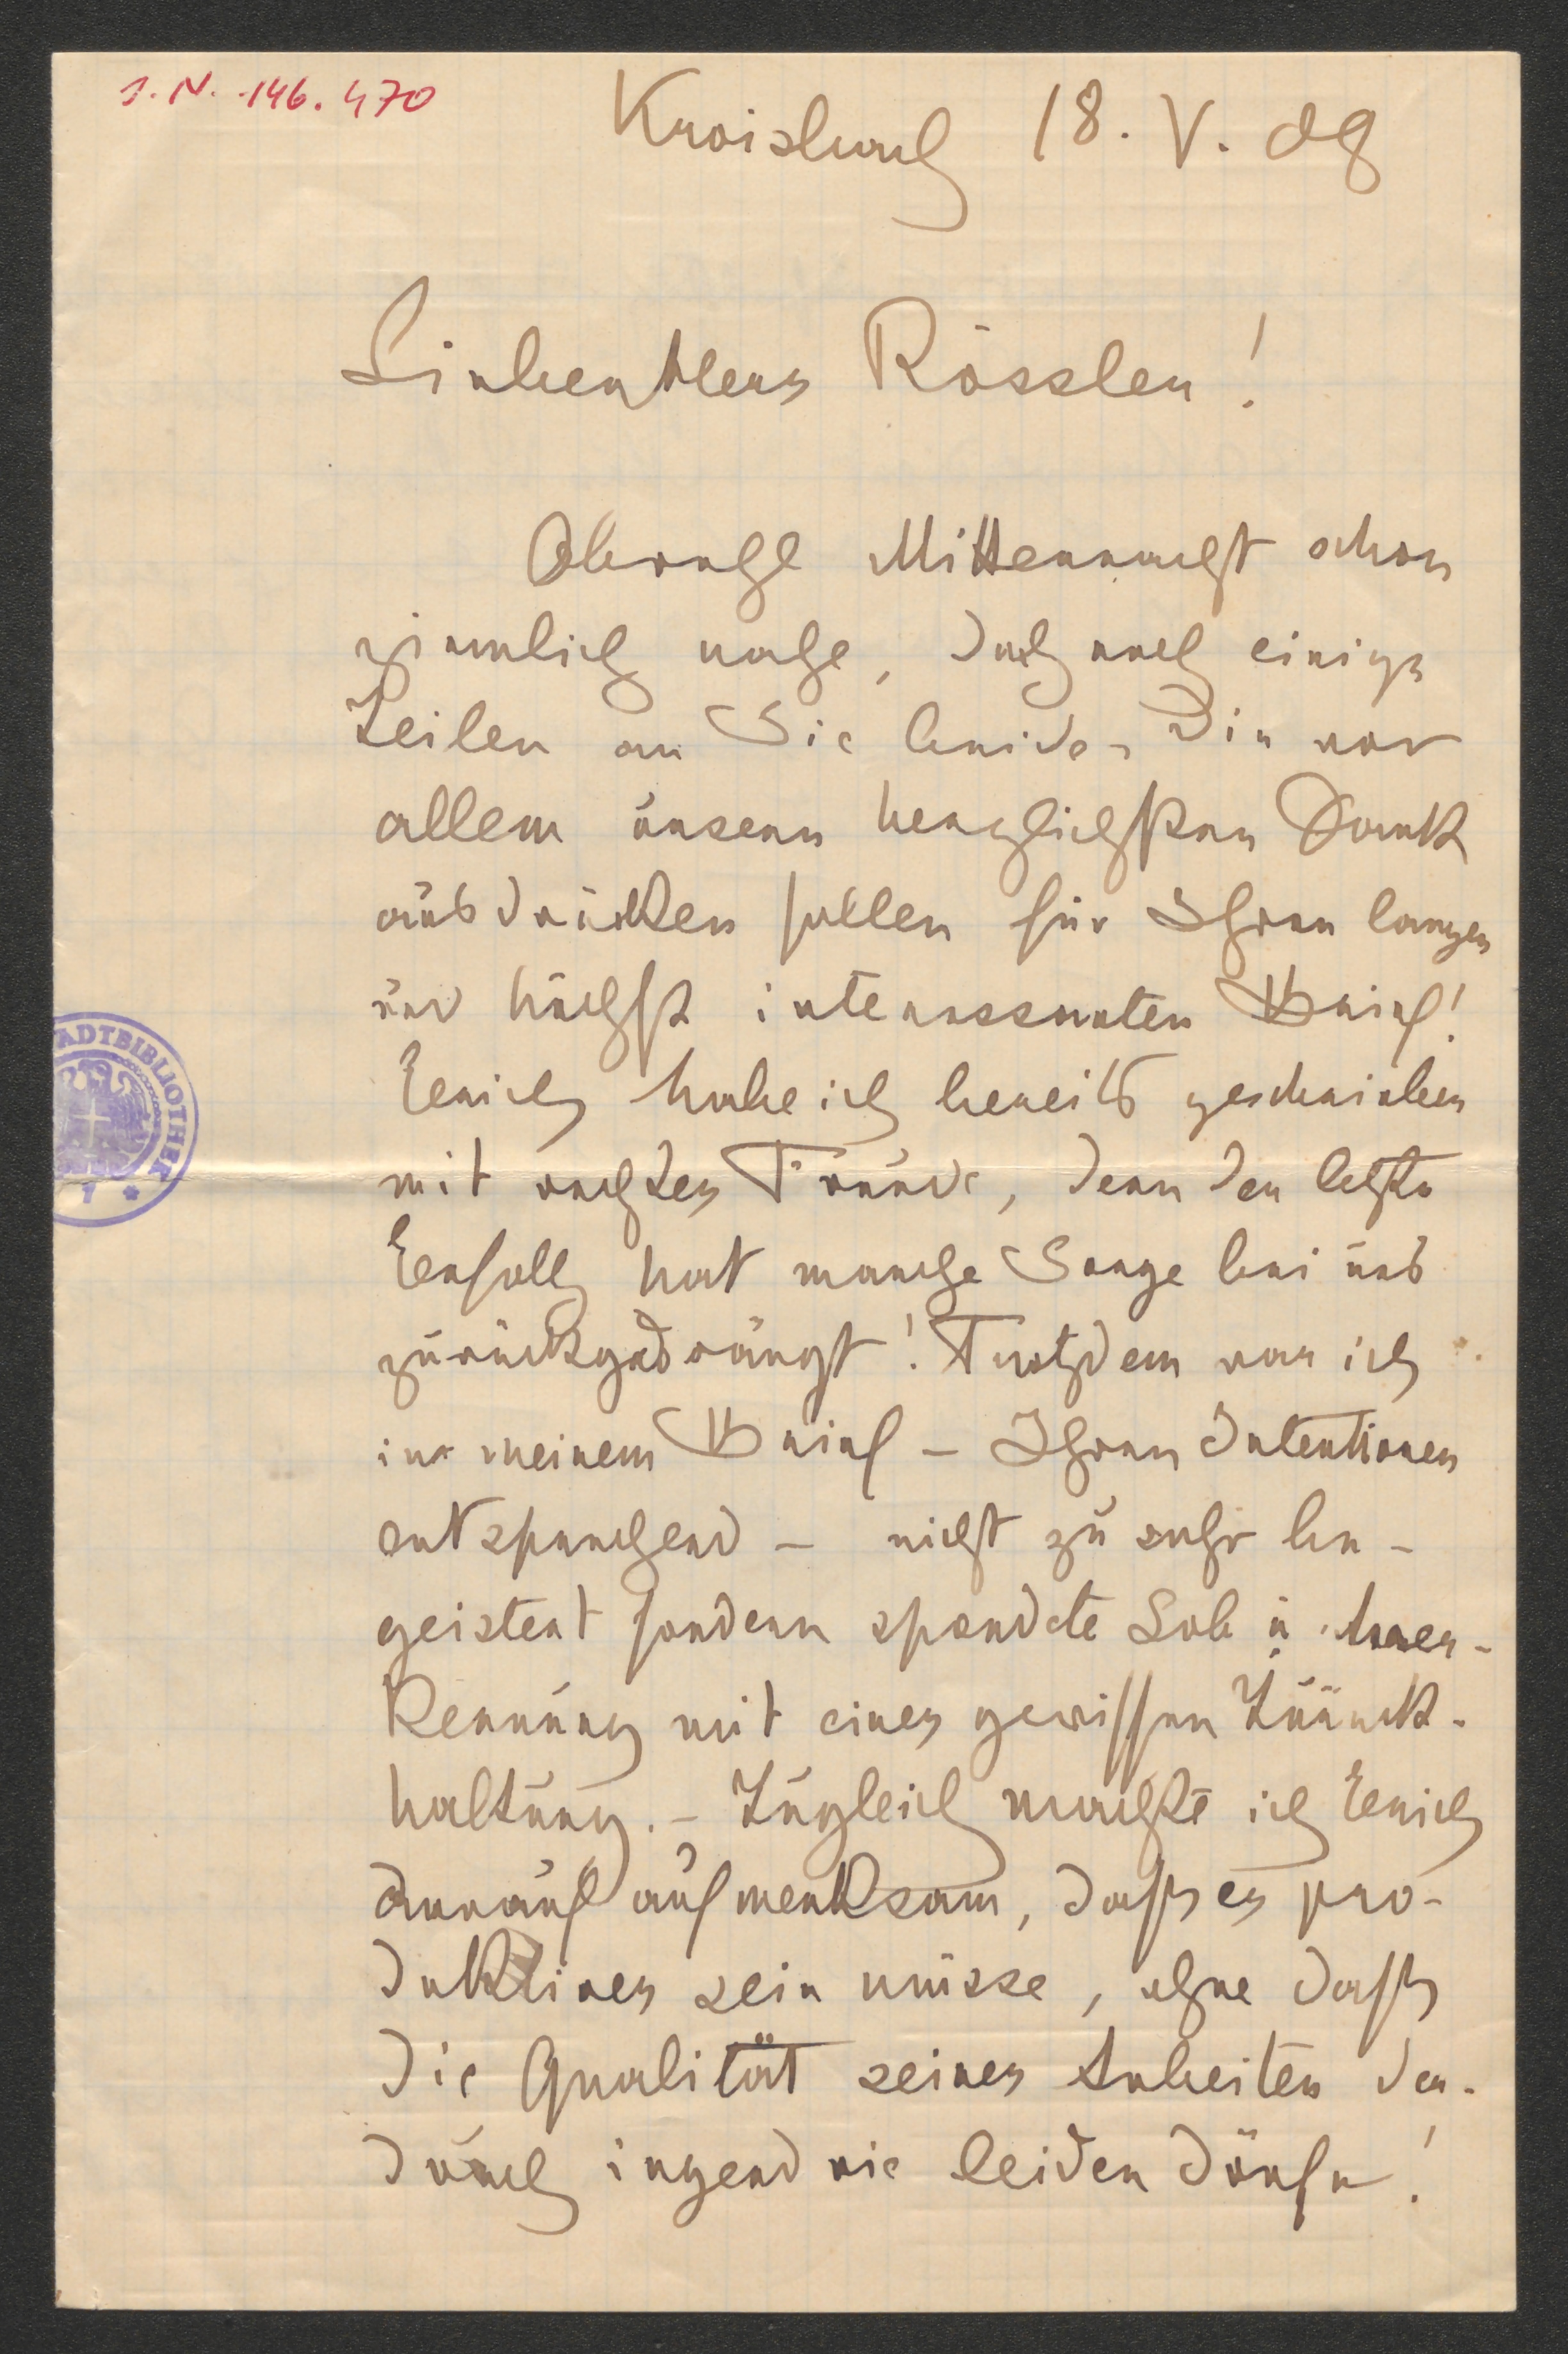 I. N. 146.470
Kroisbach 18. V. 08
Lieber Herr Rössler!
Obwohl Mitternacht schon
ziemlich nahe, doch noch einige
Zeilen an Sie beide, die vor
allem unsern herzlichsten Dank
ausdrücken sollen für Ihren langen
und höchst interessanten Brief!
Erich habe ich bereits geschrieben
mit rechter Freude, denn der letzte
Erfolg hat manche Sorge bei uns
zurückgedrängt! Trotzdem war ich
in meinem Brief – Ihren Intentionen
entsprechend – nicht zu sehr be-
geistert sondern spendete Lob u. Aner-
kennung mit einer gewissen Zurück-
haltung. – Zugleich machte ich Erich
darauf aufmerksam, dass er pro-
duktiver sein müsse, ohne dass
die Qualität seiner Arbeiten da-
durch irgendwie leiden dürfe!
STADTBIBLIOTHEK